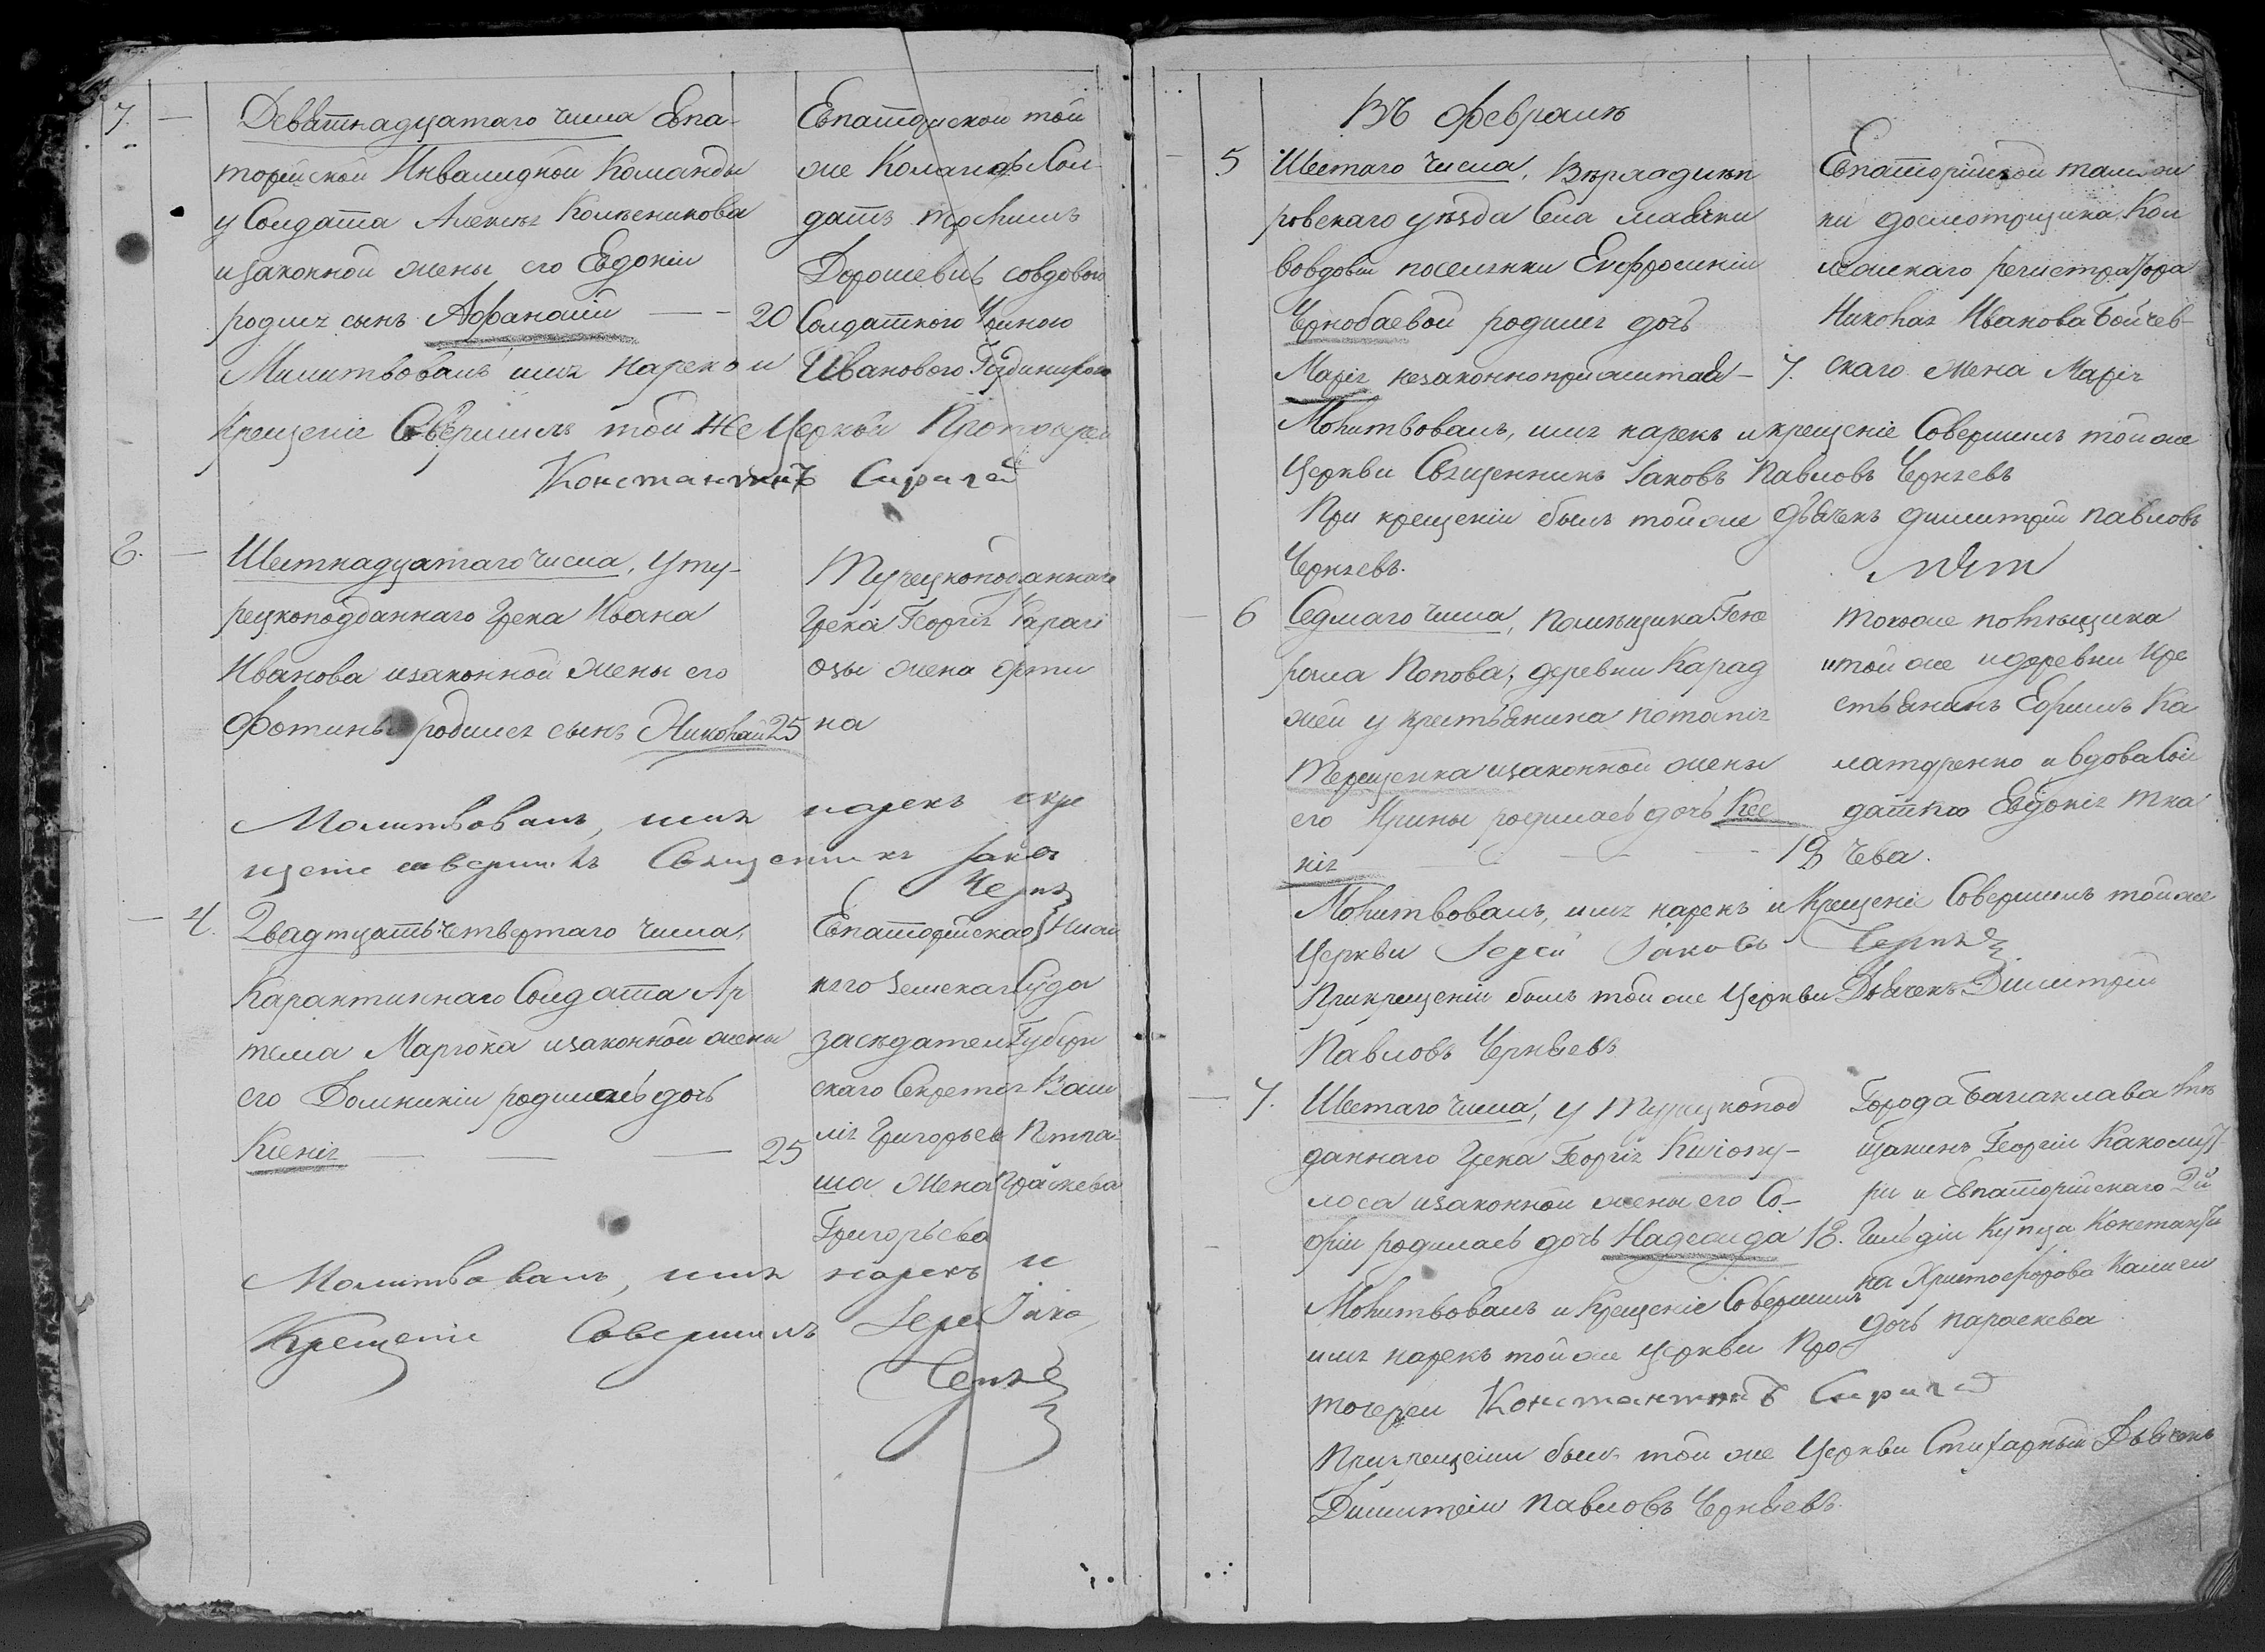 7. — Девятнадцатаго числа Евпа-
торійской Инвалидной Команды
у Солдата Алексѣя Колѣсникова
изаконной жены его Евдокіи
родился сынъ Афанасій — — 20
Евпаторіской той
же Команды Сол-
датъ
Дорошевичъ совдовою
Солдаткою
Ивановою
Молитвовалъ имя нареко и
крещеніе Совершилъ той же Церкви Протоіерей
Константинъ
8. — Шестнадцатаго числа, уту-
рецкоподданнаго Грека Ивана
Иванова изаконной жены его
Фотины родился сынъ Николай 25
Турецкоподданнаго
Грека Георгія
жена
на
Молитвовалъ, имя нарекъ икре
щеніе совершилъ Священникъ Іаковъ
Черня
— 4. Двадцать четвертаго числа,
Карантиннаго Солдата Ар
тема изаконной жены
его Домникіи родилась дочь
Ксенія — — — 25
Евпаторійскаго Ниж
няго Земскаго Суда
засѣдателя Губерн
скаго Секретя Васи
лія Григорьев
ша Жена
Григорьева
Молитвовалъ, имя нарекъ и
Крещеніе Совершилъ Іерей Іако
Черня
Въ Февралѣ
— 5 Шестаго числа,
ровскаго уѣзда Села маячки
вовдовы поселянки Евфросиніи
Чернобаевой родилась дочь
Марія незаконноприжитая — 7.
Евпаторійской тамож
ни досмотрщика Кол
лежскаго регистратора
Николая Иванова Бойчев-
скаго жена Марія
Молитвовалъ, имя нарекъ икрещеніе Совершилъ той же
Церкви Священникъ Іаковъ Павловъ Черняевъ
При крещеніи былъ той же дьячекъ димитрій павловъ
Черняевъ.
— 6 Седмаго числа, помѣщика Гене
рала Попова, деревни Карад
жей у крестьянина потапія
Терещенка изаконной жены
его Ирины родилась дочь Ксе
нія — — — 18
тогоже помѣщика
итой же идеревни кре
стьянинъ Ефимъ Ка
и вдова Сол
датка Евдокія Тка
чева.
Молитвовалъ, имя нарекъ и Крещеніе Совершилъ тойже
Церкви Іерей Іаковъ Черня
Прикрещеніи былъ той же Церкви Дьячекъ Димитрій
Павловъ Черняевъ
— 7. Шестаго числа, у Турецкопод
даннаго Грека Георгія
лоса изаконной жены его Со-
фіи родилась дочь Надежда 18.
Города Балаклава мѣ
щанинъ Георгій
ри и Евпаторійскаго 2й
Гильдіи Купца Константи
на Христофорова
дочь параскева
Молитвовалъ и Крещеніе Совершилъ
имя нарекъ той же церкви Про
тоіереи Константинъ
Прикрещеніи былъ той же Церкви Стихарный Дьячекъ
Димитріи павловъ Черняевъ.